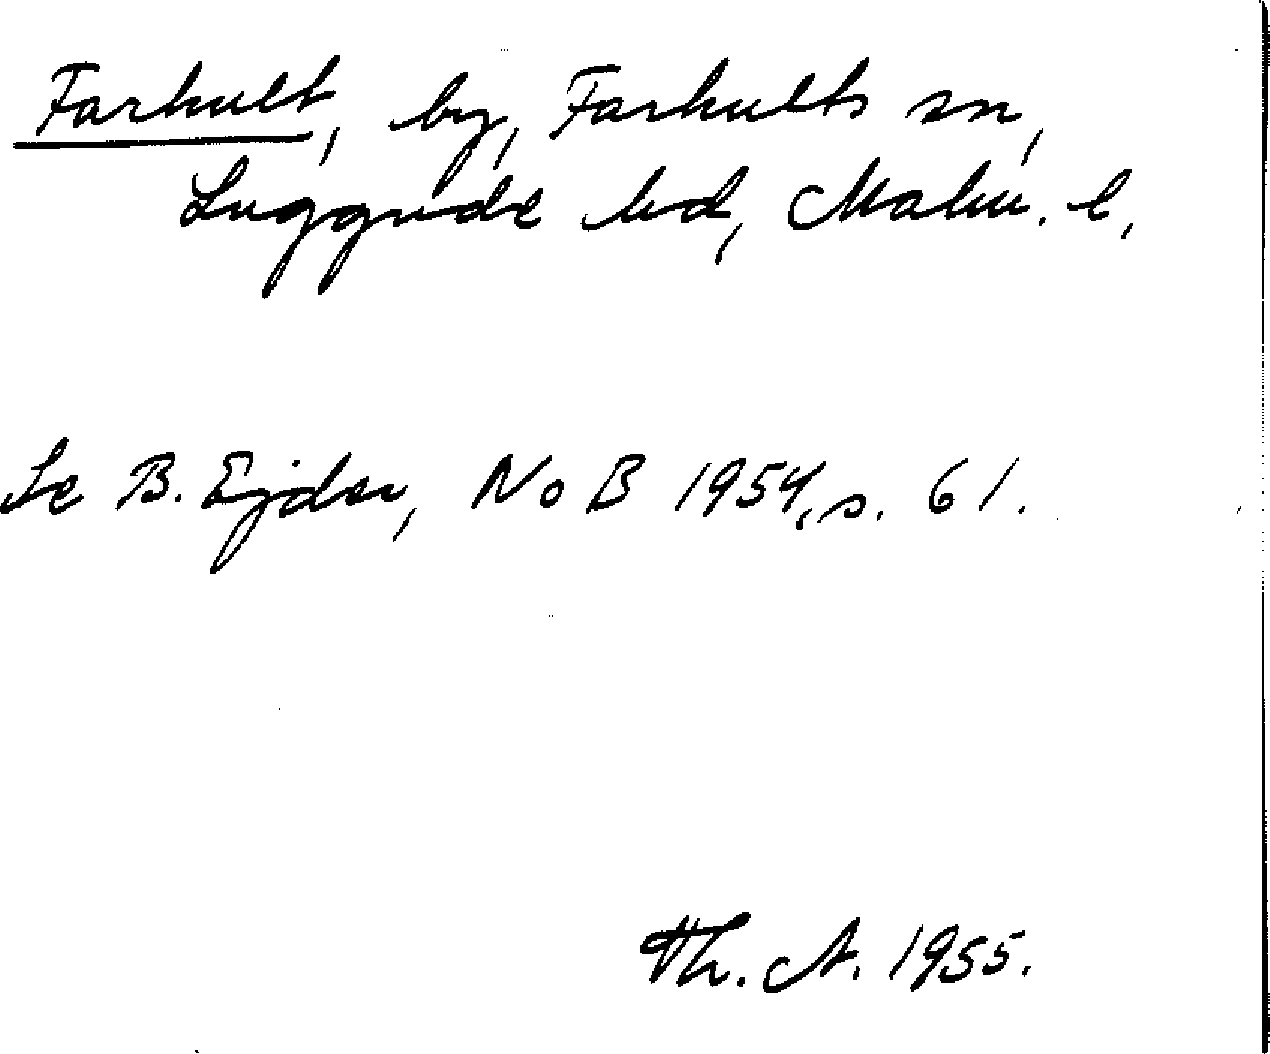 Farhult, by, Farhults sn,
Luggude hd, Malm. l.
Se B. Ejder, NoB 1954, s. 61.
Th. A. 1955.